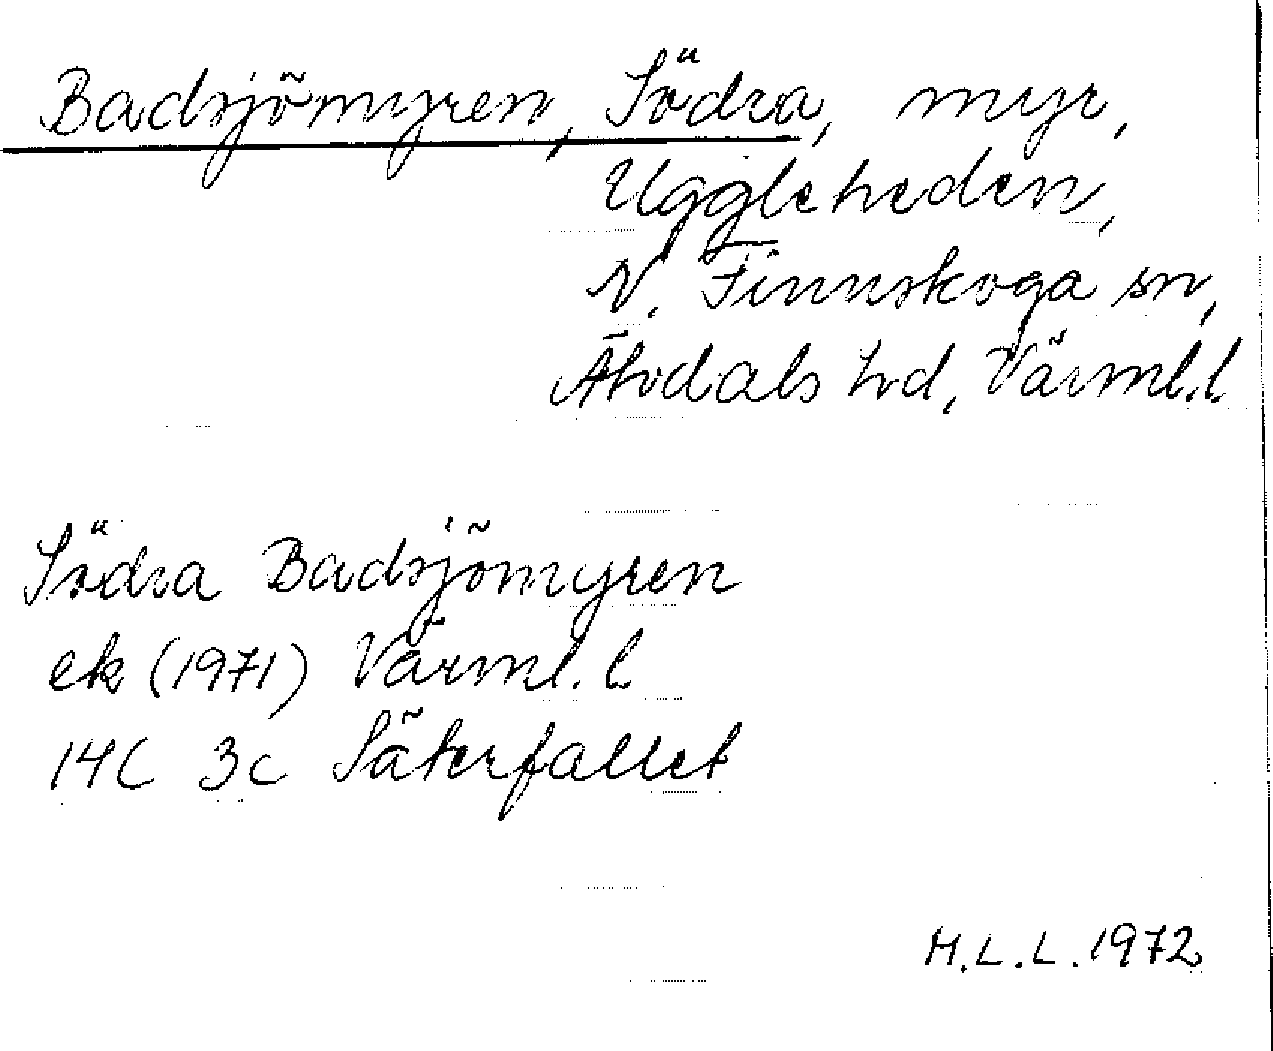 Badsjömyren, Södra, myr,
Uggleheden,
N. Finnskoga sn,
Älvdals hd, Värml.l.
Södra Badsjömyren
ek (1971) Värml. l
14C 3c Säterfallet
M.L.L. 1972